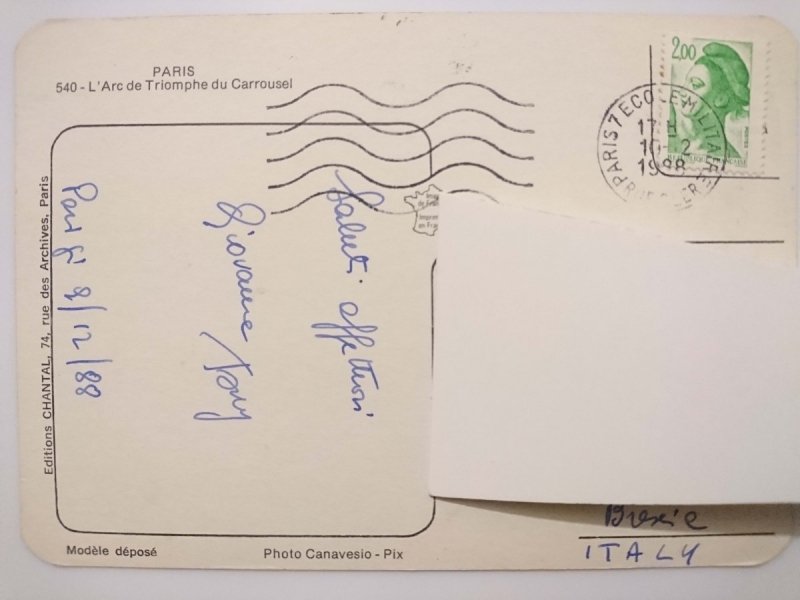 PARIS
540 - L'Arc de Triomphe du Carrousel
2,00
POSTES
PARIS 7 ECOLE MILITAIRE
17H
10-12
1988
Saluti affettuosi
Giovanna
Parigi 8/12/88
Editions CHANTAL, 74, rue des Archives, Paris
Brescia
ITALY
Modèle déposé
Photo Canavesio - Pix